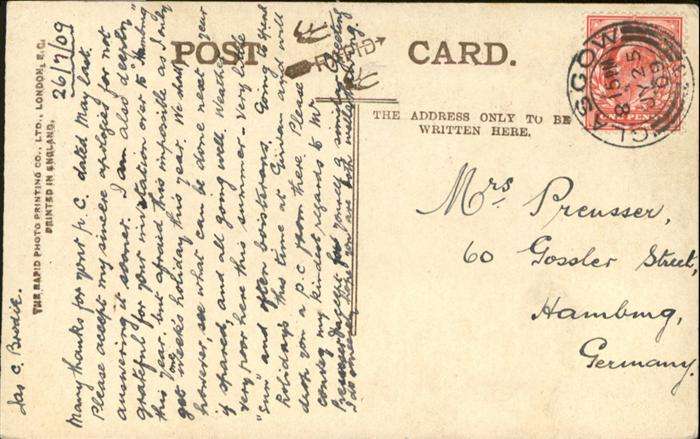 POST CARD.
RAPID
THE ADDRESS ONLY TO BE
WRITTEN HERE.
GLASGOW
8.15 PM
JY 25
09
ONE PENNY
Mrs Preusser,
60 Gossler Street,
Hamburg,
Germany.
THE RAPID PHOTO PRINTING CO., LTD., LONDON, E.C.
PRINTED IN ENGLAND.
26/7/09
Many thanks for your p.c. dated May last.
Please accept my sincere apologies for not
answering it sooner. I am also deeply
grateful for your invitation over to Hamburg
this year, but afraid this impossible as I only
get one week's holiday this year. We shall
however, see what can be done next year
if spared, and all going well. Weather
very poor here this summer - very little
"sun" and often boisterous. Going to spend
holidays this time at Girvan and will
drop you a p.c. from there. Please
convey my kindest regards to Mr
Preusser & accept for yourself similar greeting
I do sincerely hope you are both well
Jas C. Brodie.